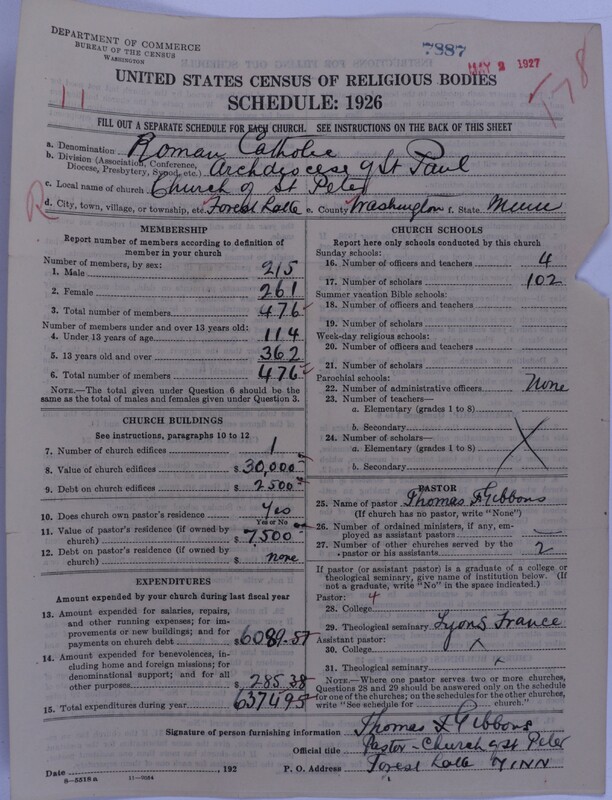 DEPARTMENT OF COMMERCE
BUREAU OF THE CENSUS
WASHINGTON
7887
MAY 2 1927
178
UNITED STATES CENSUS OF RELIGIOUS BODIES
SCHEDULE: 1926
11
FILL OUT A SEPARATE SCHEDULE FOR EACH CHURCH. SEE INSTRUCTIONS ON THE BACK OF THIS SHEET
a. Denomination Roman Catholic
b. Division (Association, Conference, Diocese, Presbytery, Synod, etc.) Archdiocese of St Paul
c. Local name of church Church of St Peter
R
d. City, town, village, or township, etc. Forest Lake e. County Washington f. State Minn
MEMBERSHIP
Report number of members according to definition of
member in your church
Number of members, by sex:
1. Male 215
2. Female 261
3. Total number of members 476
Number of members under and over 13 years old:
4. Under 13 years of age 114
5. 13 years old and over 362
6. Total number of members 476
NOTE.—The total given under Question 6 should be the
same as the total of males and females given under Question 3.
CHURCH BUILDINGS
See instructions, paragraphs 10 to 12
7. Number of church edifices 1
8. Value of church edifices $ 30,000
9. Debt on church edifices $ 2500
10. Does church own pastor's residence? Yes
Yes or No
11. Value of pastor's residence (if owned by
church) $ 7,500
12. Debt on pastor's residence (if owned by
church) $ none
EXPENDITURES
Amount expended by your church during last fiscal year
13. Amount expended for salaries, repairs,
and other running expenses; for im-
provements or new buildings; and for
payments on church debt $ 6089.57
14. Amount expended for benevolences,
including home and foreign missions; for
denominational support; and for all
other purposes $ 285.38
15. Total expenditures during year 6374 95
CHURCH SCHOOLS
Report here only schools conducted by this church
Sunday schools:
16. Number of officers and teachers 4
17. Number of scholars 102
Summer vacation Bible schools:
18. Number of officers and teachers
19. Number of scholars
Week-day religious schools:
20. Number of officers and teachers
21. Number of scholars
Parochial schools:
22. Number of administrative officers None
23. Number of teachers—
a. Elementary (grades 1 to 8)
b. Secondary
24. Number of scholars—
a. Elementary (grades 1 to 8)
b. Secondary
PASTOR
25. Name of pastor Thomas F Gibbons
(If church has no pastor, write "None")
26. Number of ordained ministers, if any, em-
ployed as assistant pastors —
27. Number of other churches served by the
pastor or his assistants 2
If pastor (or assistant pastor) is a graduate of a college or
theological seminary, give name of institution below. (If
not a graduate, write "No" in the space indicated.)
Pastor: 4
28. College
29. Theological seminary Lyons France
Assistant pastor:
30. College x
31. Theological seminary x
NOTE.—Where one pastor serves two or more churches,
Questions 28 and 29 should be answered only on the schedule
for one of the churches; on the schedules for the other churches,
write "See schedule for church."
Signature of person furnishing information Thomas F Gibbons
Official title Pastor - Church of St Peter
Date , 192 P. O. Address Forest Lake MINN
8—5518 a